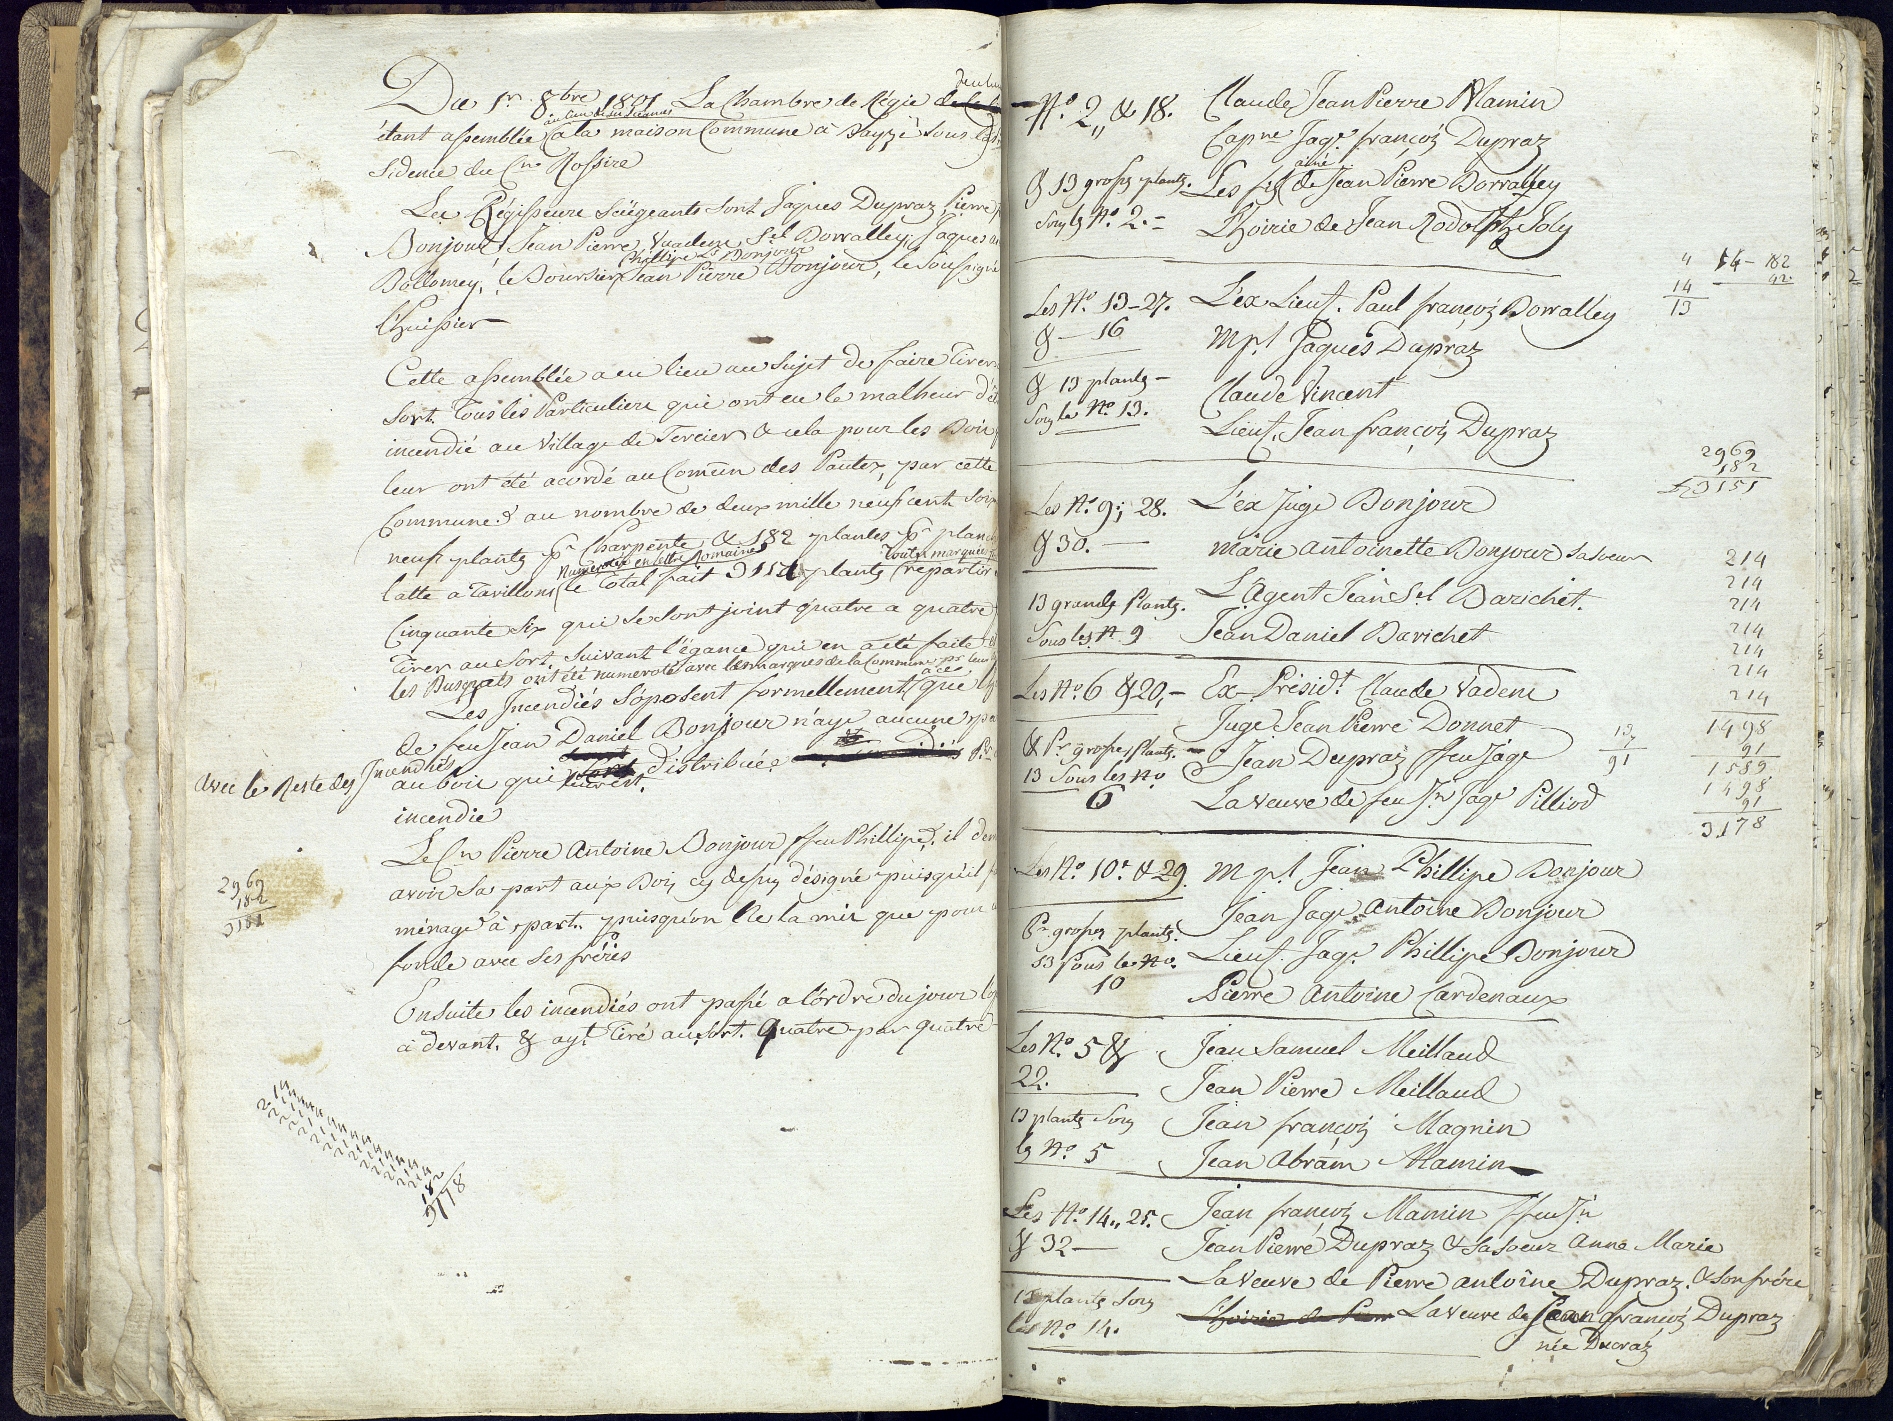 Du 1r 8bre 1801 La Chambre de Régie
au lieu de ses séances
étant assemblée à la maison Commune à Bayzé sous la
sidence du Cn Rossire
Les Régisseurs Siégeants sont Jaques Dupraz Pierre
Bonjour, Jean Pierre Vuadens, Sel Dorralley, Jaques
Phillipe Ls Bonjour
Bollomey, le Boursier Jean Pierre Bonjour, le Soussigné
l'huissier
Cette assemblée a eu lieu au Sujet de faire Tirer
Sort Tous les Particuliers qui ont eu le malheur
incendié au Village de Tercier & cela pour les Bois
leur ont été acordé au Comun des Pautex, par cette
Commune au nombre de deux mille neuf cent
neuf plantes pr Charpente & 182 plantes pr
Numeroter en lettre Romaine Toute marquée
latte a Tavillons le Total fait plantes repartir
Cinquante Six qui se sont joint quatre a quatre
Tirer au Sort, Suivant l'égance qui en a été faite
les Busquets ont été numeroté avec les marques de la Commune pr leur
à ces
Les Incendiés Soposent formellement que
de feu Jean Daniel Bonjour n'aye aucune
Avec le Reste des Incendiés
au bois qui seront distribuée
incendie
Le Cn Pierre Antoine Bonjour ffeu Phillipe, il
avoir Sa part aux Bois cy dessus désigné puisqu'il
ménage à part puisqu'on Ne la mis que pour
fonde avec Ses fréres
2969
182
3151
Ensuite les incendiés ont passé a l'ordre du jour
ci devant & ayt Tiré au Sort Quatre par quatre
18
3178
No 2 „ & 18. Claude Jean Pierre Mamin
Capne Jaqs françois Dupraz
ainé
& 13 grosses plantes. Les fils de Jean Pierre Dorralley
Sous le No 2.- L'hoirie de Jean Rodolph Joly
4 14 - 182
14 42
13
Les No 13-27. L'ex Lieut. Paul françois Dorralley
& - 16 Mpl Jaques Dupraz
& 13 plantes - Claude Vincent
Sous le No 13. Lieut. Jean françois Dupraz
2969
182
3151
Les No 9; 28. L'ex Juge Bonjour
& 30. - marie antoinette Bonjour sa soeur
13 grands Plantes. L'Agent Jean Sel Barichet.
Sous les N 9 Jean Daniel Barichet
214
214
214
214
214
214
214
1498
91
1589
1498
91
3178
Les No 6 & 20,- Ex-Présidt Claude Vadens
Juge Jean Pierre Donnet
& Pr grosses Plantes - Jean Dupraz ffeu Jaqe
13 Sous les No
6 La Veuve de feu Jn Jaqe Pilliod
13
7
91
Les No 10. & 29. Mpl Jean Phillipe Bonjour
Jean Jaqs Antoine Bonjour
Pr grosses plantes. Lieut. Jaqs Phillipe Bonjour
13 Sous le No.
10 Pierre Antoine Cardenaux
Les No. 5 & Jean Samuel Meillaud
22. Jean Pierre Meillaud
13 plantes Sous Jean françois Magnin
le No. 5 Jean Abram Mamin
Les No. 14 „ 25. Jean françois Mamin ffeu Jn
& 32 - Jean Pierre Dupraz & sa soeur Anne Marie
La Veuve de Pierre antoine Dupraz. & Son frére
13 plantes Sous L'hoirie de Pierre La Veuve de Jean françois Dupraz
le No. 14. née Ducraz